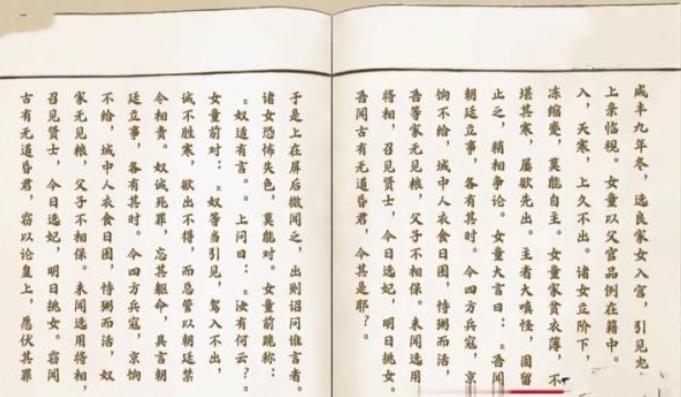 咸丰九年冬，选良家女入宫，引见尤，
上亲临视。女童以父官品例在籍中。
入，天寒，上久不出。诸女立阶下，
冻缩蹙，莫能自主。女童家贫衣薄，不
堪其寒，屡欲先出。主者大嗔怪，固留
止之，稍相争论。女童大言曰：“吾闻
朝廷立事，各有其时。今四方兵寇，京
饷不给，城中人衣食日困，恃粥而活，
吾等家无见粮，父子不相保。未闻选用
将相，召见贤士，今日选妃，明日挑女。
吾闻古有无道昏君，今其是耶？”
于是上在屏后微闻之，出则诏问谁言者。
诸女恐怖失色，莫能对。女童前跪称：
“奴适有言。”上问曰：“汝有何云？”
女童前对：“奴等当引见，驾入不出，
诚不胜寒，欲出不得，而总管以朝廷禁
令相责。奴诚死罪，忘其躯命，具言朝
廷立事，各有其时。今四方兵寇，京饷
不给，城中人衣食日困，恃粥而活，奴
家无见粮，父子不相保。未闻选用将相，
召见贤士，今日选妃，明日挑女。窃闻
古有无道昏君，窃以论皇上，愿伏其罪